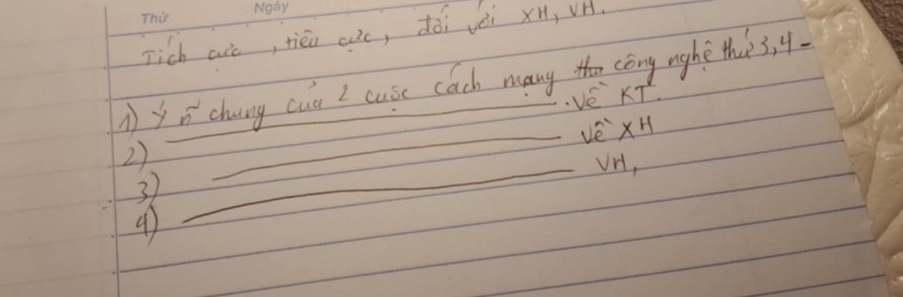 Thứ Ngày
Tích cực, tiêu cực, đối với XH, VH.
1) Ý ñ chung của 2 cuộc cách mạng công nghệ thứ 3, 4 -
2) về KT.
3) về XH
4) VH,